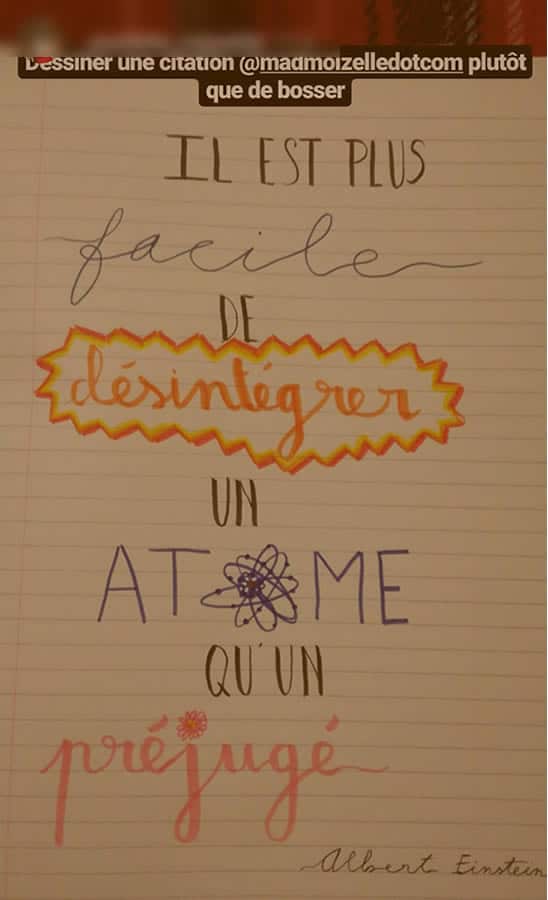 Dessiner une citation @madmoizelledotcom plutôt
que de bosser
IL EST PLUS
facile
DE
désintégrer
UN
ATOME
QU'UN
préjugé
Albert Einstein